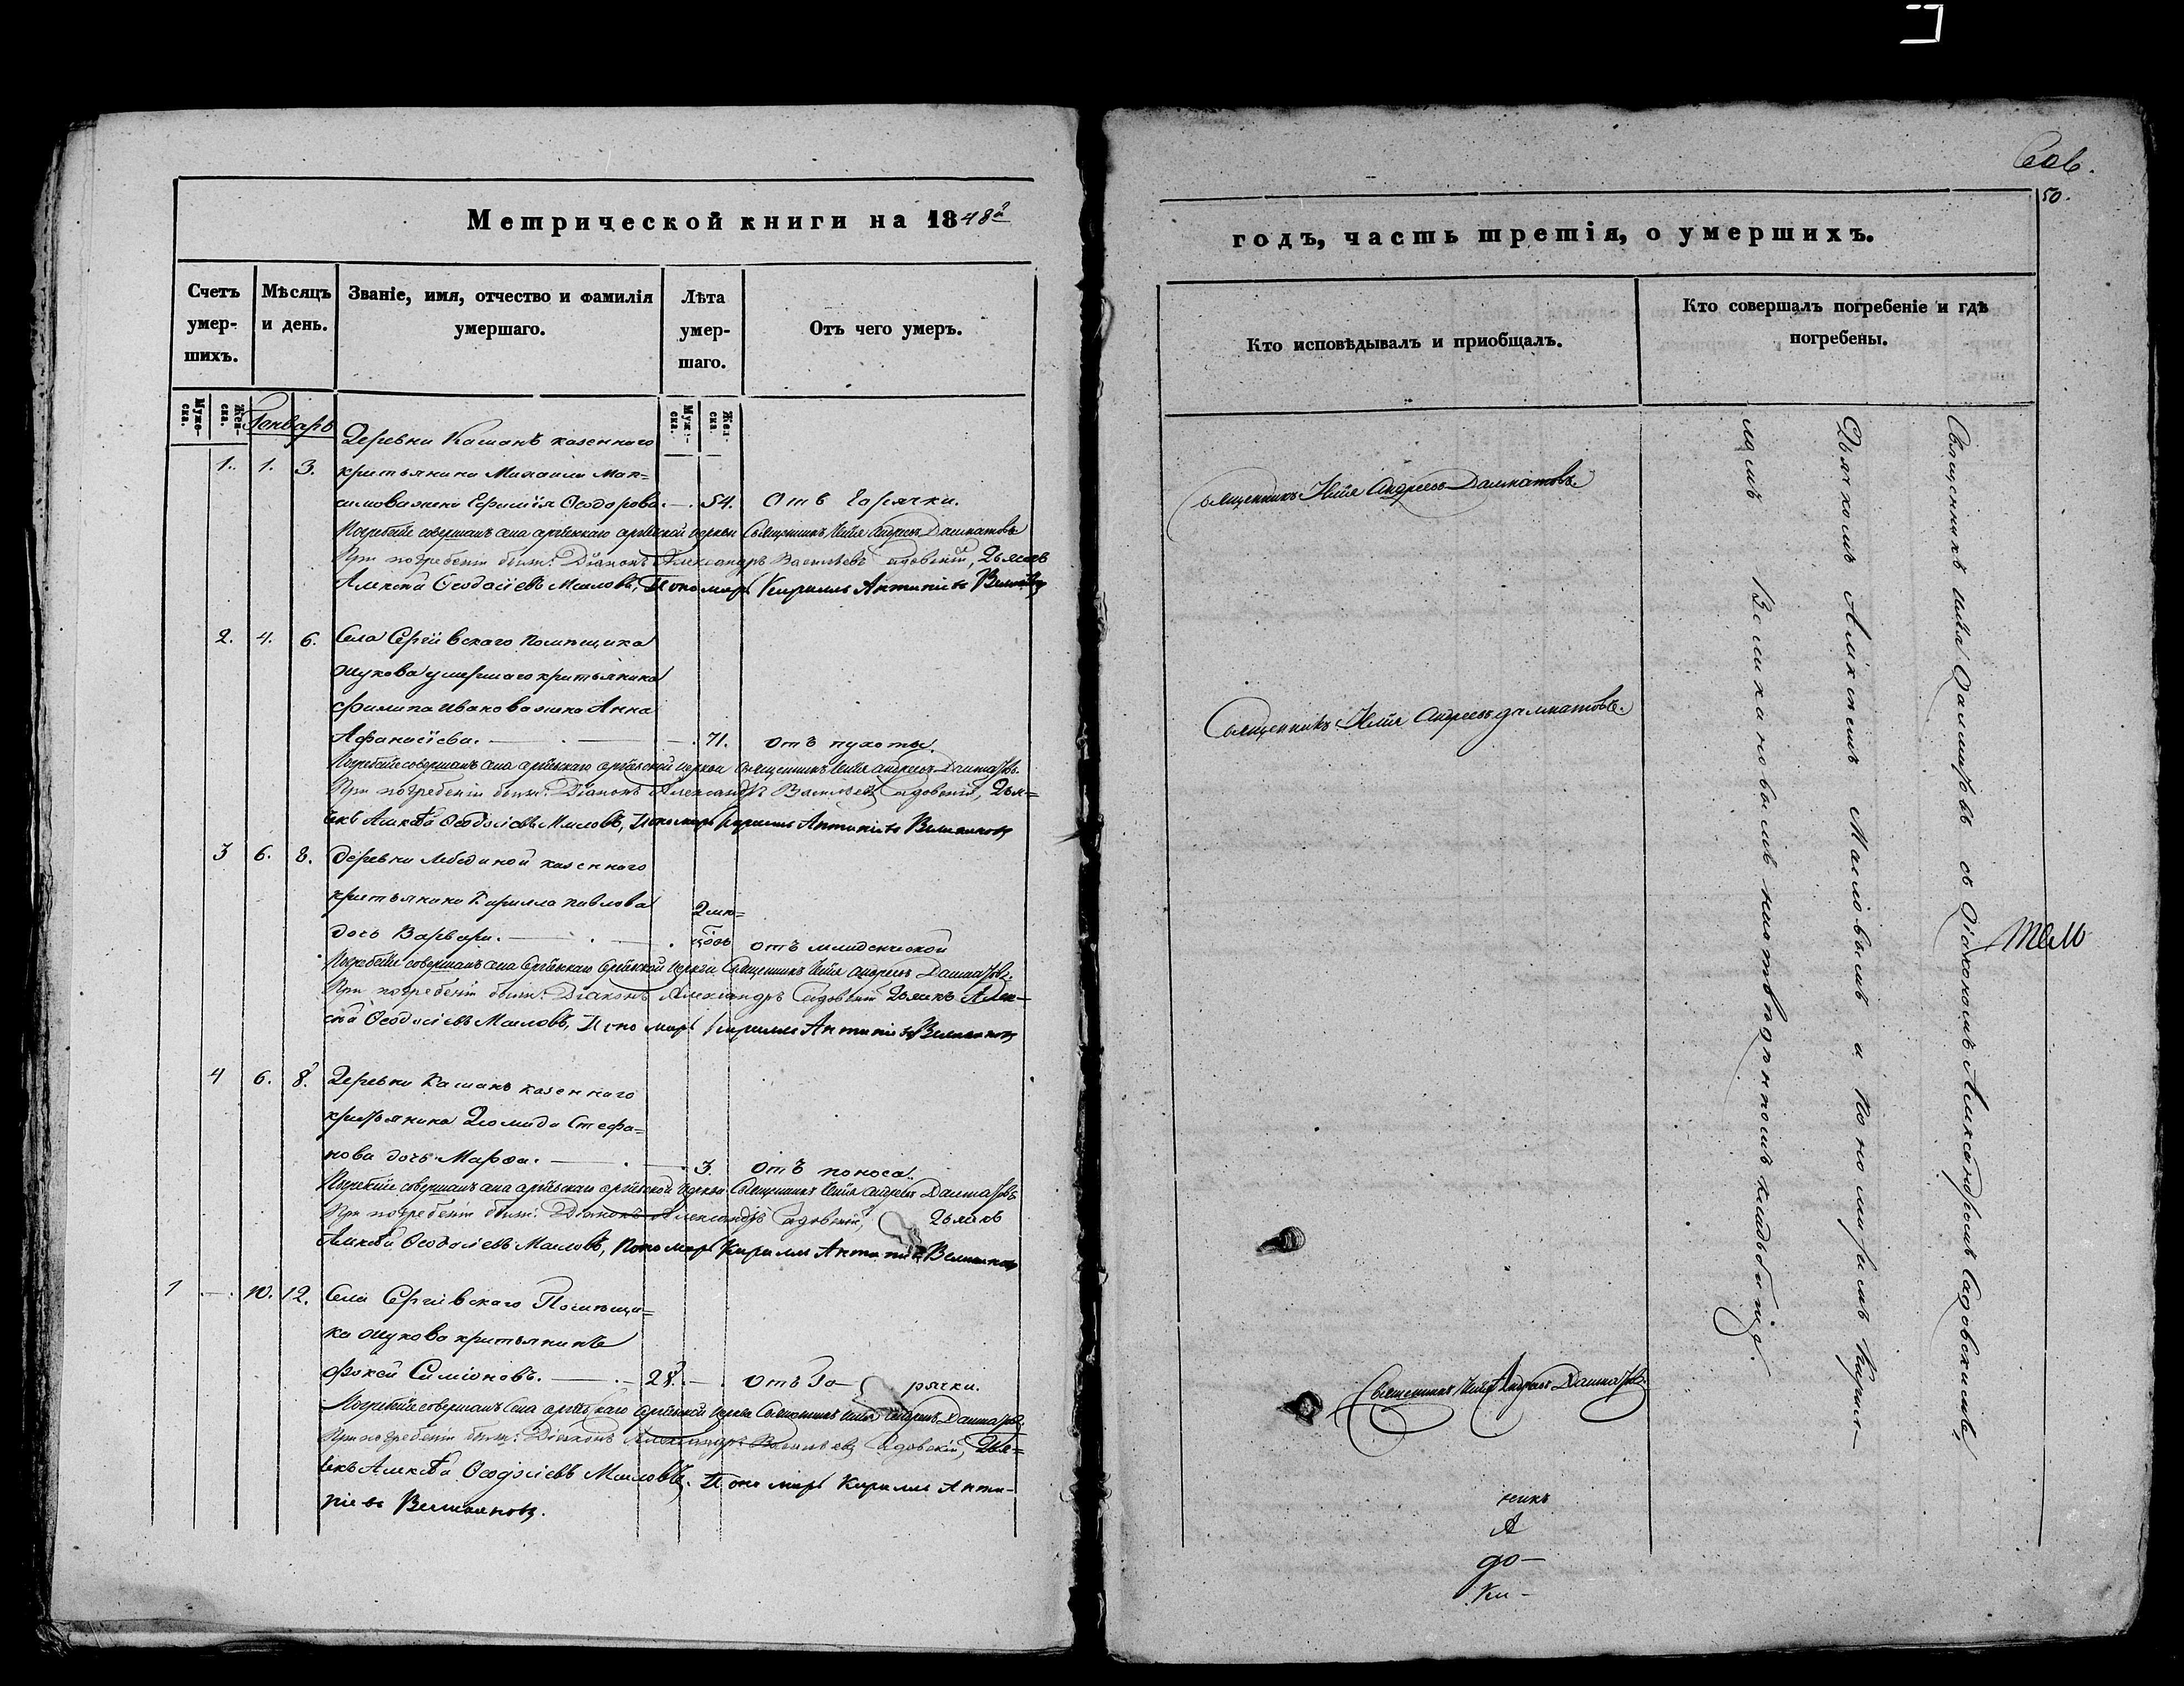 Метрической книги на 1848й
Счетъ умер-
шихъ.
Мѣсяцъ
и день.
Званіе, имя, отчество и фамилія
умершаго.
Лѣта
умер-
шаго.
Отъ чего умеръ.
Муже-
ска.
Жен-
ска.
Генварь
Муж-
ска.
Жен-
ска.
Деревни Камакъ казеннаго
1. 1. 3. крестьянина Михаила Мак-
симова жена Ефимія Ѳеодорова. — 54. Отъ горячки.
Погребеніе совершалъ села Сергіевскаго Сергіевской церкви Священникъ Илія Андреевъ Далматовъ
При погребеніи были: Діаконъ Александръ Васильевъ Садовскій, Дьячекъ
Алексѣй Ѳеодосіевъ Масловъ, Пономарь Кириллъ Антипіевъ
2. 4. 6. Села Сергіевскаго помѣщика
умершаго крестьянина
Филипа Иванова жена Анна
Афанасіева. — 71. отъ сухоты.
Погребеніе совершалъ села Сергіевскаго Сергіевской церкви Священникъ Илія Андреевъ Далматовъ.
При погребеніи были: Діаконъ Александръ Васильевъ Садовскій, Дья=
чекъ Алексѣй Ѳеодосіевъ Масловъ, Пономарь Кириллъ Антипіевъ
3 6. 8. деревни Лебединой казеннаго
крестьянина Кирилла Павлова
2 мѣся=
дочь Варвара. — цовъ отъ младенческой
Погребеніе совершалъ села Сергіевскаго Сергіевской церкви Священникъ Илія Андреевъ Далматовъ.
При погребеніи были: Діаконъ Александръ Садовскій Дьячекъ Алек-
сѣй Ѳеодосіевъ Масловъ, Пономарь Кириллъ Антипіевъ
4 6. 8. Деревни Камакъ казеннаго
крестьянина Діомида Стефа=
нова дочь Марѳа. — 3. Отъ поноса.
Погребеніе совершалъ села Сергіевскаго Сергіевской церкви Священникъ Илія Андреевъ Далматовъ
При погребеніи были: Діаконъ Александръ Садовскій, Дьячекъ
Алексѣй Ѳеодосіевъ Масловъ, Пономарь Кириллъ Антипіевъ
1 — 10. 12. Села Сергіевскаго Помѣщи=
ка крестьянинъ
Фокей Симіоновъ. — 28. — Отъ Го- рячки.
Погребеніе совершалъ села Сергіевскаго Сергіевской церкви Священникъ Илія Андреевъ Далматовъ.
При погребеніи были: Діаконъ Александръ Васильевъ Садовскій, Дья=
чекъ Алексѣй Ѳеодосіевъ Масловъ. Пономарь Кириллъ Анти-
піевъ
50.
годъ, часть третія, о умершихъ.
Кто исповѣдывалъ и приобщалъ.
Кто совершалъ погребеніе и гдѣ
погребены.
Священникъ Илія Андреевъ Далматовъ.
Священникъ Илія Андреевъ Далматовъ.
Священникъ Илія Андреевъ Далматовъ.
Священникъ Илія Далматовъ съ Діакономъ Александромъ Садовскимъ,
Дьячкомъ Алексѣемъ Масловымъ и Пономаремъ Кирил-
ломъ на отведенномъ кладбищѣ.
чекъ
А
до-
Ки-